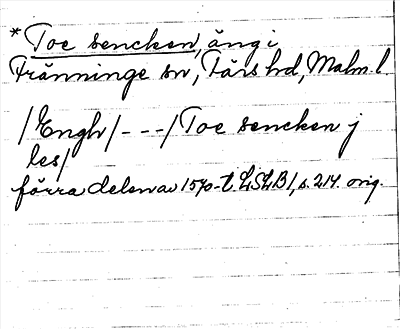 * Toe sencken, äng i
Främninge sn, Färs hd, Malm. l
/Engh/ - - - / Toe sencken j
les/
förra delen av 1570-t. LSLB1, s. 214. orig.